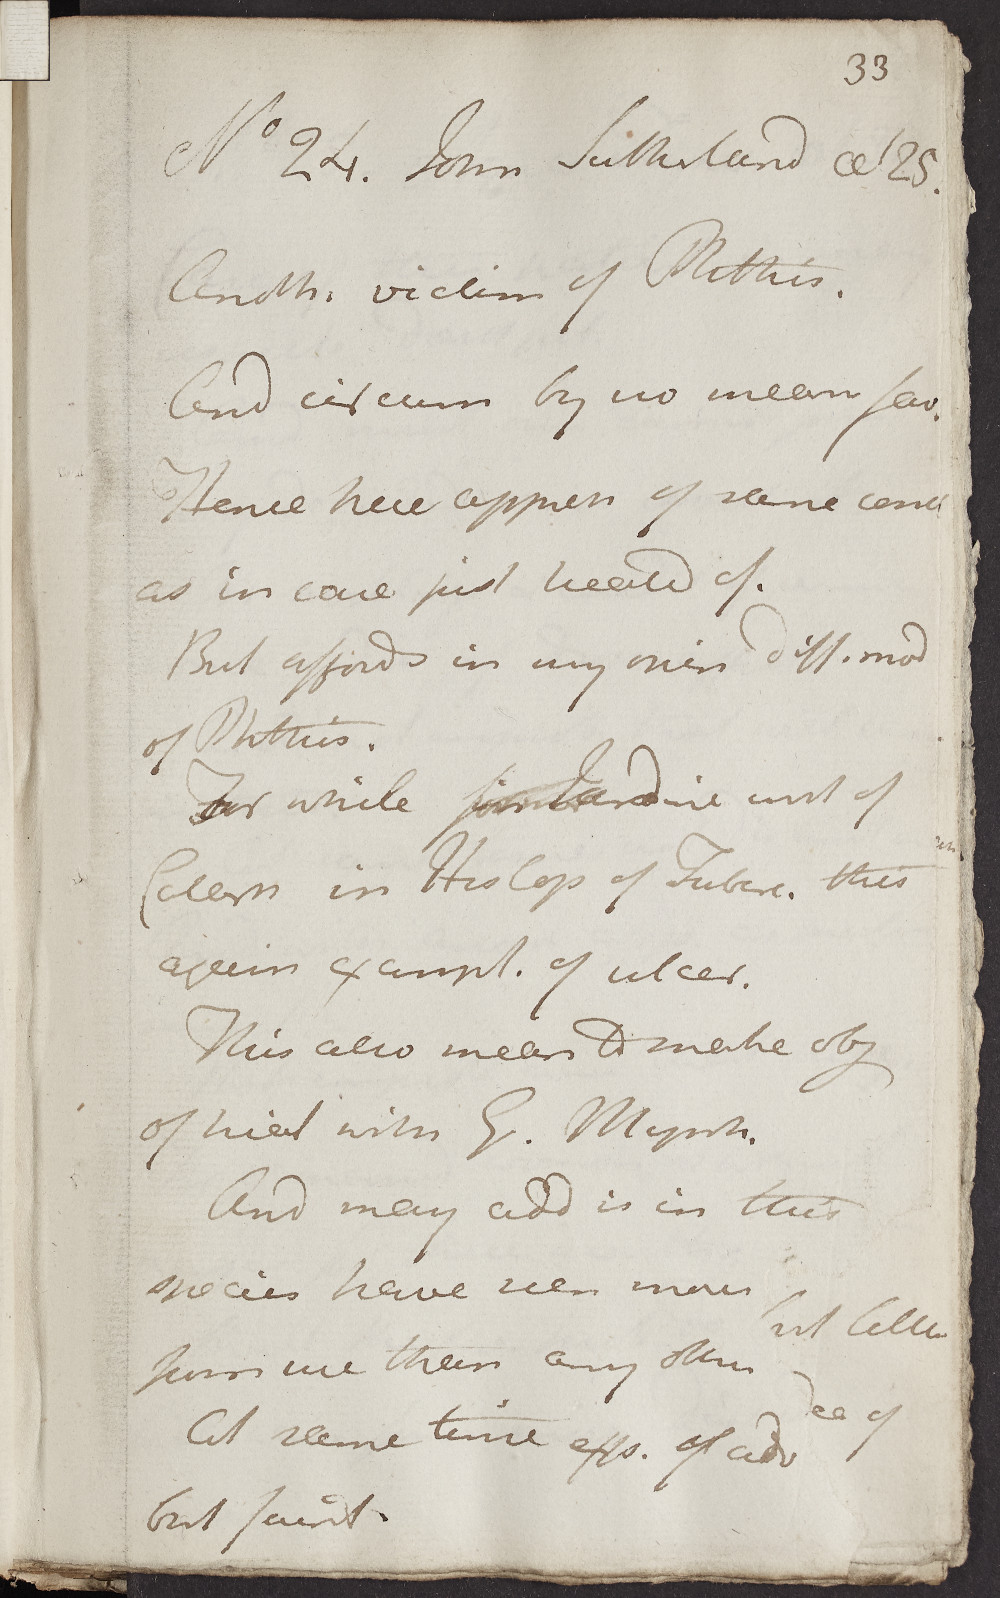 33
No 24. John Sutherland aet 25.
Anoth. victim of Phthis.
And circum by no mean fav.
Hence here appren of same
as in case just treatd of.
But affords in my opin diff. mod
of Phthis.
For while Jardine inst of
in Hislop of Tuberc. this
again exampl. of ulcer.
This also mean to make obj
of trial with G. Myrrh.
And may add is in this
species have seen more
from use than any other
At same time exps. of adv
but faint.